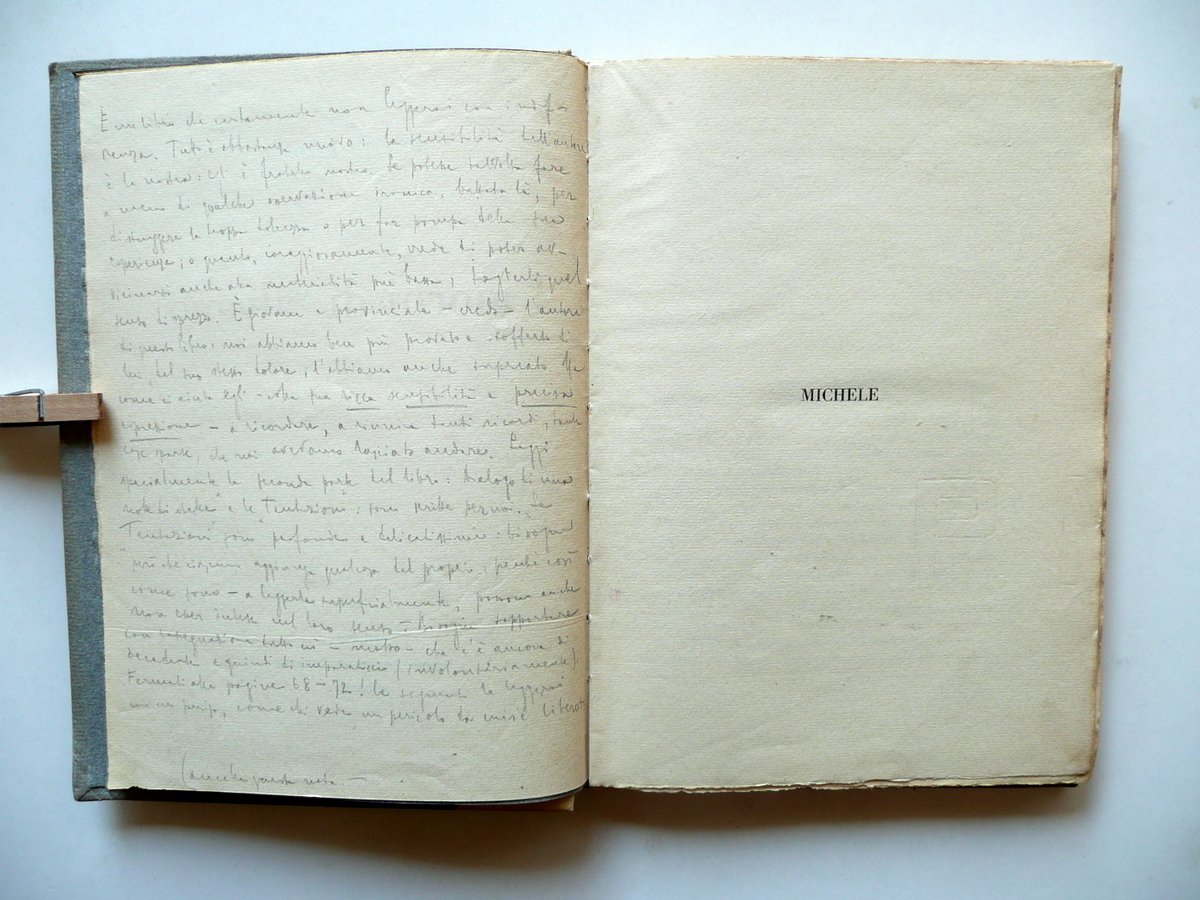 È un libro che certamente non leggerai con indiffe
renza. Tutto è abbastanza nuovo: la sensibilità dell'autore
è la nostra: è fratello nostro. Se potesse talvolta fare
a meno di qualche osservazione ironica, buttata là, per
distruggere la troppa dolcezza o per far pompa della sua
esperienza; o quando, coraggiosamente, crede di poter av-
vicinarsi anche alla materialità più bassa, togliergli quel
senso di sprezzo. È giovane e provinciale – credo – l'autore
di questo libro: noi abbiamo ben più provato e sofferto di
lui, del suo stesso dolore; l'abbiamo anche superato. Ma
come ci aiuta egli – colla sua ricca sensibilità e precisa
espressione – a ricordare, a riunire tanti ricordi, tante
cose sparse, che noi avevamo lasciato andare. Leggi
specialmente la seconda parte del libro: Dialogo di una
notte di stelle" e le Tentazioni: sono scritte per noi. Le
"Tentazioni" sono profonde e delicatissime: bisogna
però che ciascuno aggiunga qualcosa del proprio, perché così
come sono – a leggerle superficialmente, possono anche
non esser intese nel loro senso. – Bisogna sopportare
con rassegnazione tutto ciò – – che c'è ancora di
decadente e quindi di (involontariamente)
Fermati alle pagine 68–72! le seguenti le leggerai
come chi vede un pericolo da cui s'è liberato
(cancella questa nota –
MICHELE